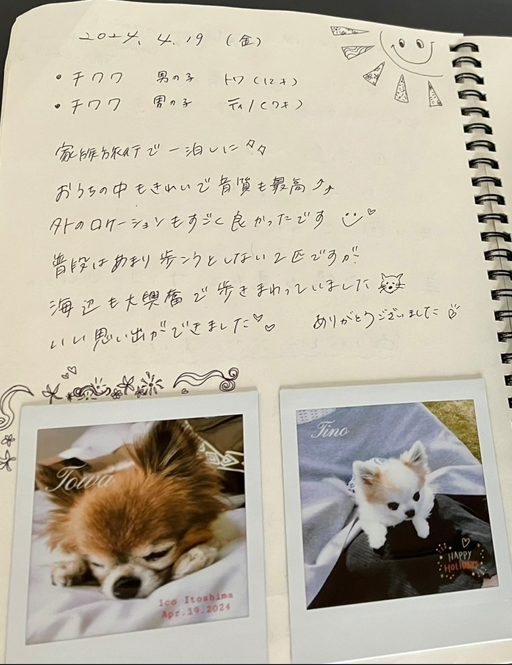 2024. 4. 19 (金)
• チワワ 男の子 トワ(12才)
• チワワ 男の子 ティノ(7才)
家族旅行で一泊しに
おうちの中もきれいで音質も最高
外のロケーションもすごく良かったです
普段はあまり歩こうとしない2匹ですが
海辺も大興奮で歩きまわっていました
いい思い出ができました ありがとうございました
Towa
Tino
HAPPY
HOLIDAYS
ico Itoshima
Apr.19.2024